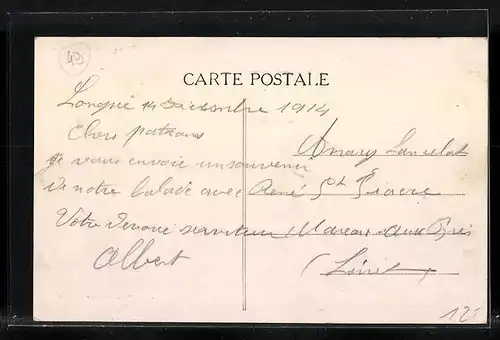 49
CARTE POSTALE
Longué 14 Décembre 1914
Chers patrons
je vous envoie un souvenir
de notre balade avec René
Votre dévoué serviteur
Albert
Amary Lancelot
St Fiacre
Mareau-aux-Prés
(Loiret)
125